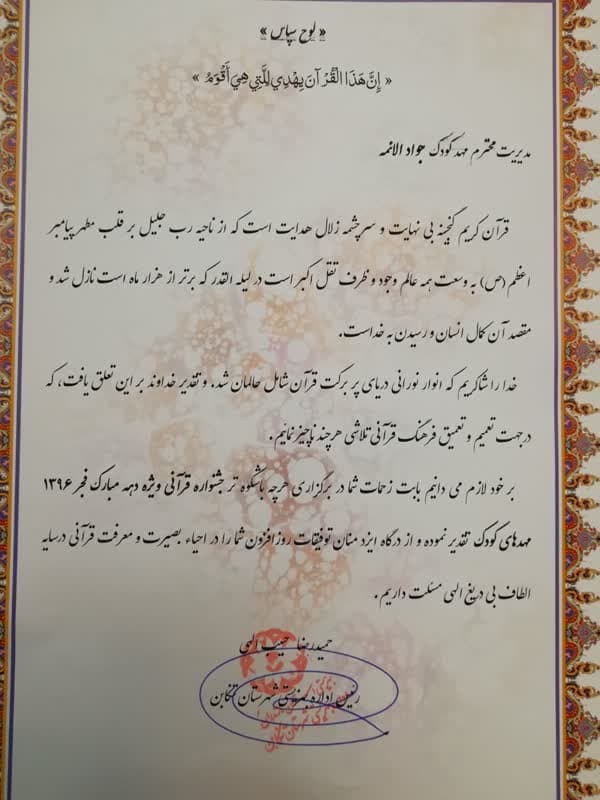 « لوح سپاس »
« إِنَّ هَذَا الْقُرْآنَ يِهْدِي لِلَّتِي هِيَ أَقْوَمُ »
مدیریت محترم مهد کودک جواد الائمه
قرآن کریم گنجینه بی نهایت و سرچشمه زلال هدایت است که از ناحیه رب جلیل بر قلب مطهر پیامبر
اعظم (ص) به وسعت همه عالم وجود و ظرف ثقل اکبر است در لیله القدر که برتر از هزار ماه است نازل شد و
مقصد آن کمال انسان و رسیدن به خداست.
خدا را شاکریم که انوار نورانی دریای پر برکت قرآن شامل حالمان شد. و تقدیر خداوند بر این تعلق یافت، که
در جهت تعمیم و تعمیق فرهنگ قرآنی تلاشی هرچند ناچیز نمائیم.
بر خود لازم می دانیم بابت زحمات شما در برگزاری هرچه باشکوه تر جشنواره قرآنی ویژه دهه مبارک فجر ۱۳۹۶
مهدهای کودک تقدیر نموده و از درگاه ایزد منان توفیقات روز افزون شما را در احیاء بصیرت و معرفت قرآنی در سایه
الطاف بی دریغ الهی مسئلت داریم.
حمیدرضا حبیب الهی
رئیس اداره بهزیستی شهرستان تنکابن